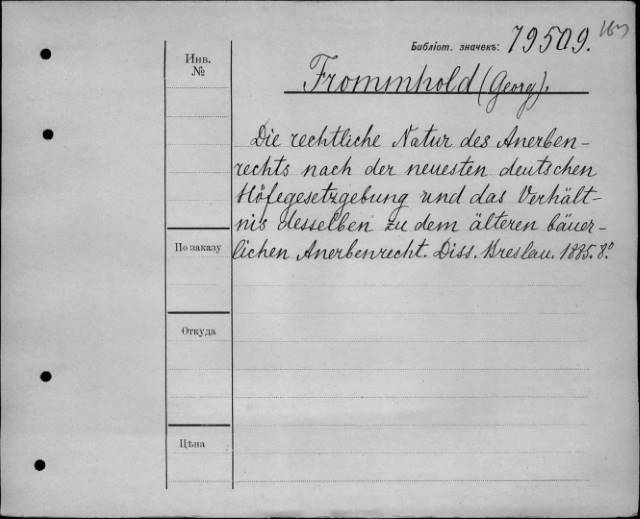 Библіот. значекъ: 79509.
Инв. №
Frommhold (Georg).
Die rechtliche Natur des Anerben-
rechts nach der neuesten deutschen
Höfegesetzgebung und das Verhält-
nis desselben zu dem älteren bäuer-
lichen Anerbenrecht. Diss. Breslau. 1885. 8°
По заказу
Откуда
Цѣна